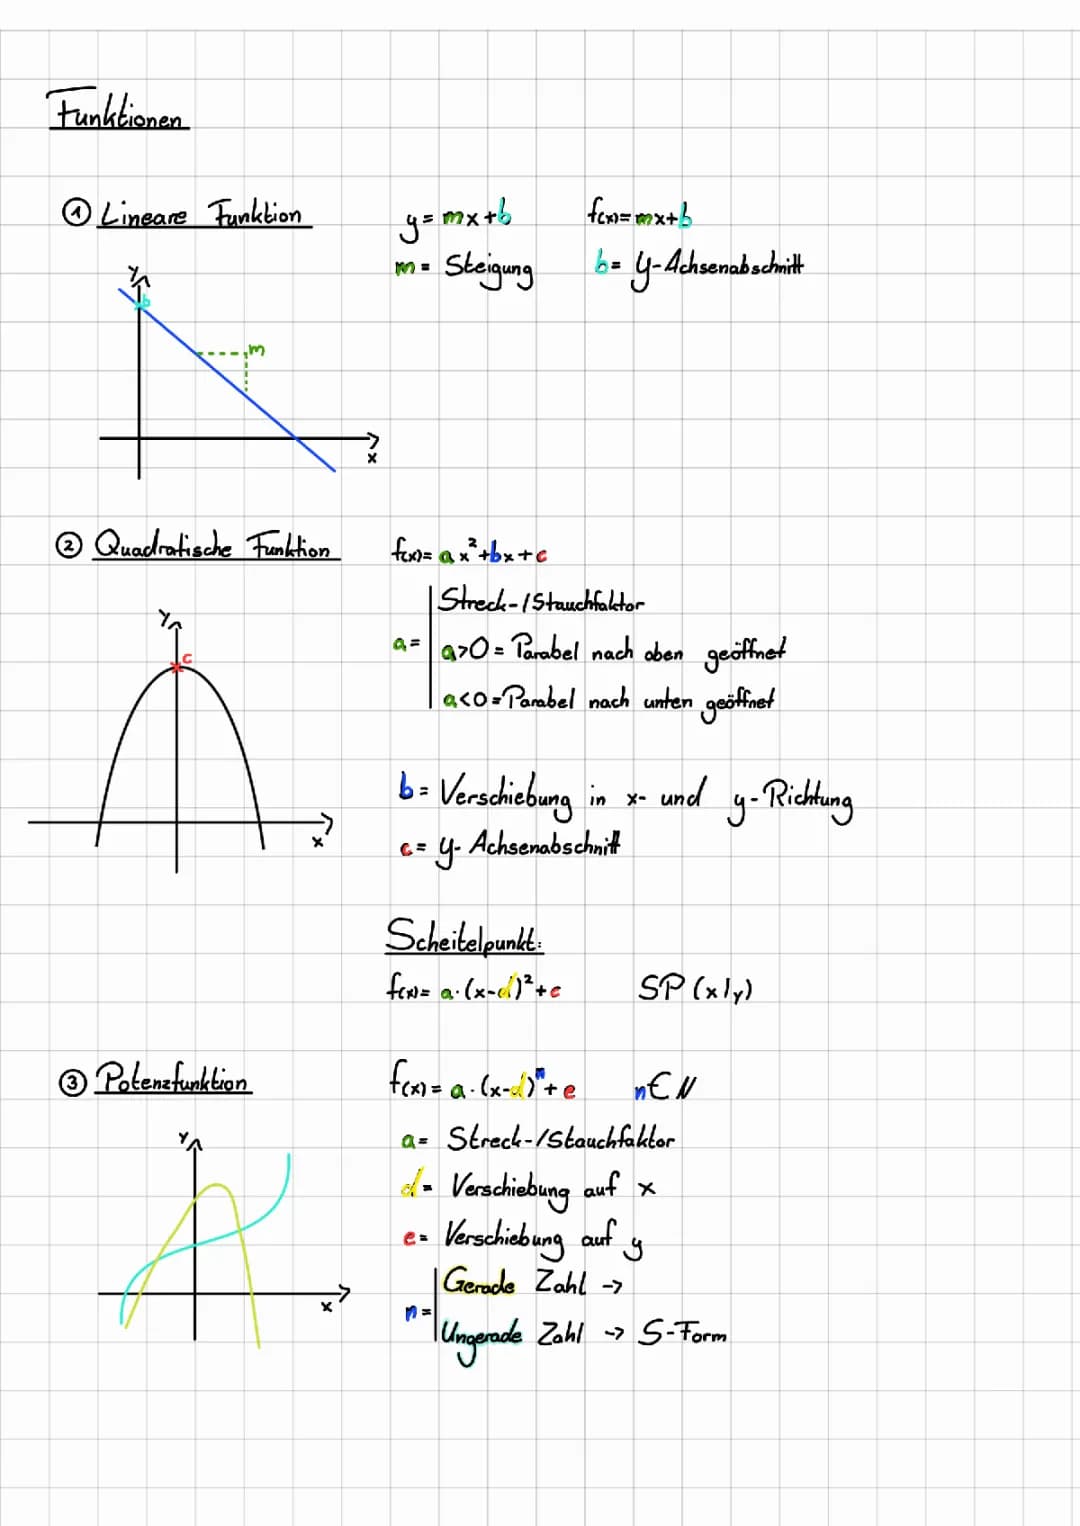 Funktionen
① Lineare Funktion
y = mx+b
f(x)= mx+b
m = Steigung
b = y-Achsenabschnitt
y
b
m
x
② Quadratische Funktion
f(x)= ax²+bx+c
a =
Streck-/Stauchfaktor
a>0 = Parabel nach oben geöffnet
a<0 = Parabel nach unten geöffnet
y
c
x
b = Verschiebung in x- und y-Richtung
c = y-Achsenabschnitt
Scheitelpunkt:
f(x)= a·(x-d)²+c
SP(x|y)
③ Potenzfunktion
f(x) = a·(x-d)ⁿ+e
n∈ℕ
y
x
a = Streck-/Stauchfaktor
d = Verschiebung auf x
e = Verschiebung auf y
n =
Gerade Zahl →
Ungerade Zahl → S-Form